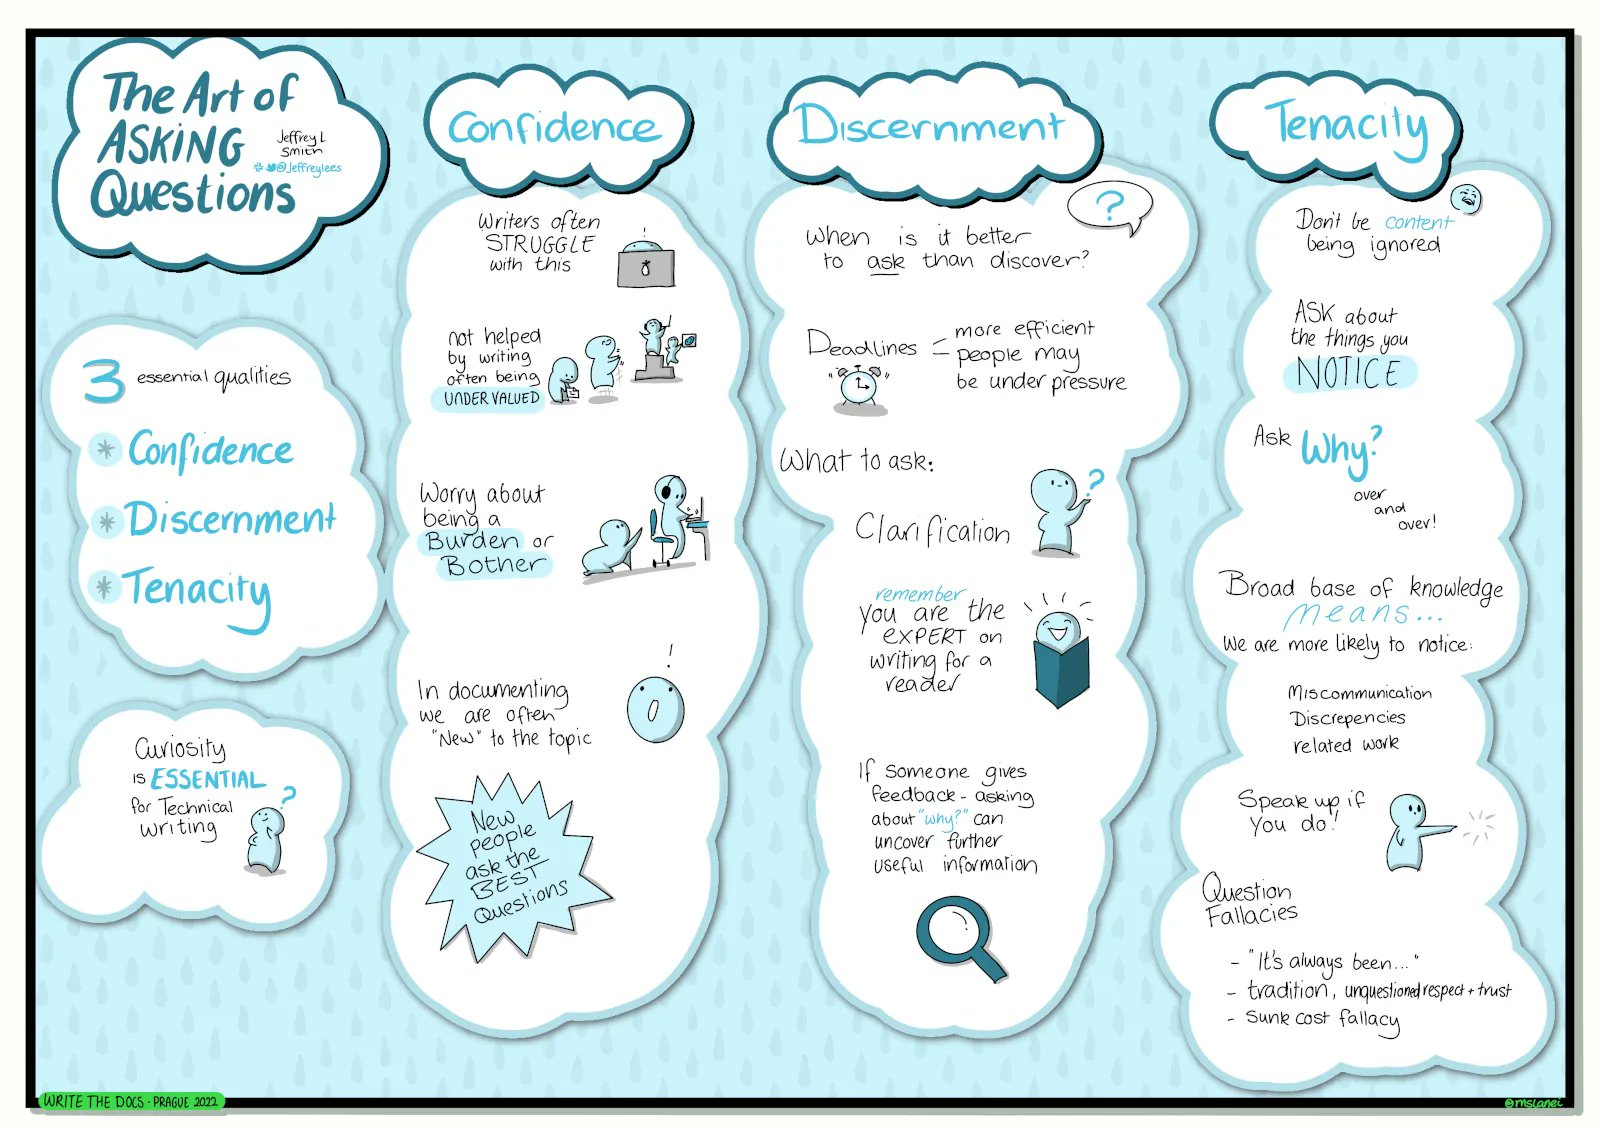 The Art of
ASKING
Questions
Jeffrey L
Smith
@Jeffreylees
3 essential qualities
* Confidence
* Discernment
* Tenacity
Curiosity
is ESSENTIAL
for Technical
writing
?
Confidence
Writers often
STRUGGLE
with this
!
not helped
by writing
often being
UNDERVALUED
Worry about
being a
Burden or
Bother
!
In documenting
we are often
"New" to the topic
New
people
ask the
BEST
Questions
Discernment
?
When is it better
to ask than discover?
Deadlines
more efficient
people may
be under pressure
What to ask:
?
Clarification
remember
you are the
EXPERT on
writing for a
reader
If someone gives
feedback - asking
about "why?" can
uncover further
useful information
Tenacity
Don't be content
being ignored
ASK about
the things you
NOTICE
Ask Why?
over
and
over!
Broad base of knowledge
means...
We are more likely to notice:
Miscommunication
Discrepencies
related work
Speak up if
you do!
Question
Fallacies
- "It's always been..."
- tradition, unquestioned respect + trust
- sunk cost fallacy
WRITE THE DOCS · PRAGUE 2022
@mslanei